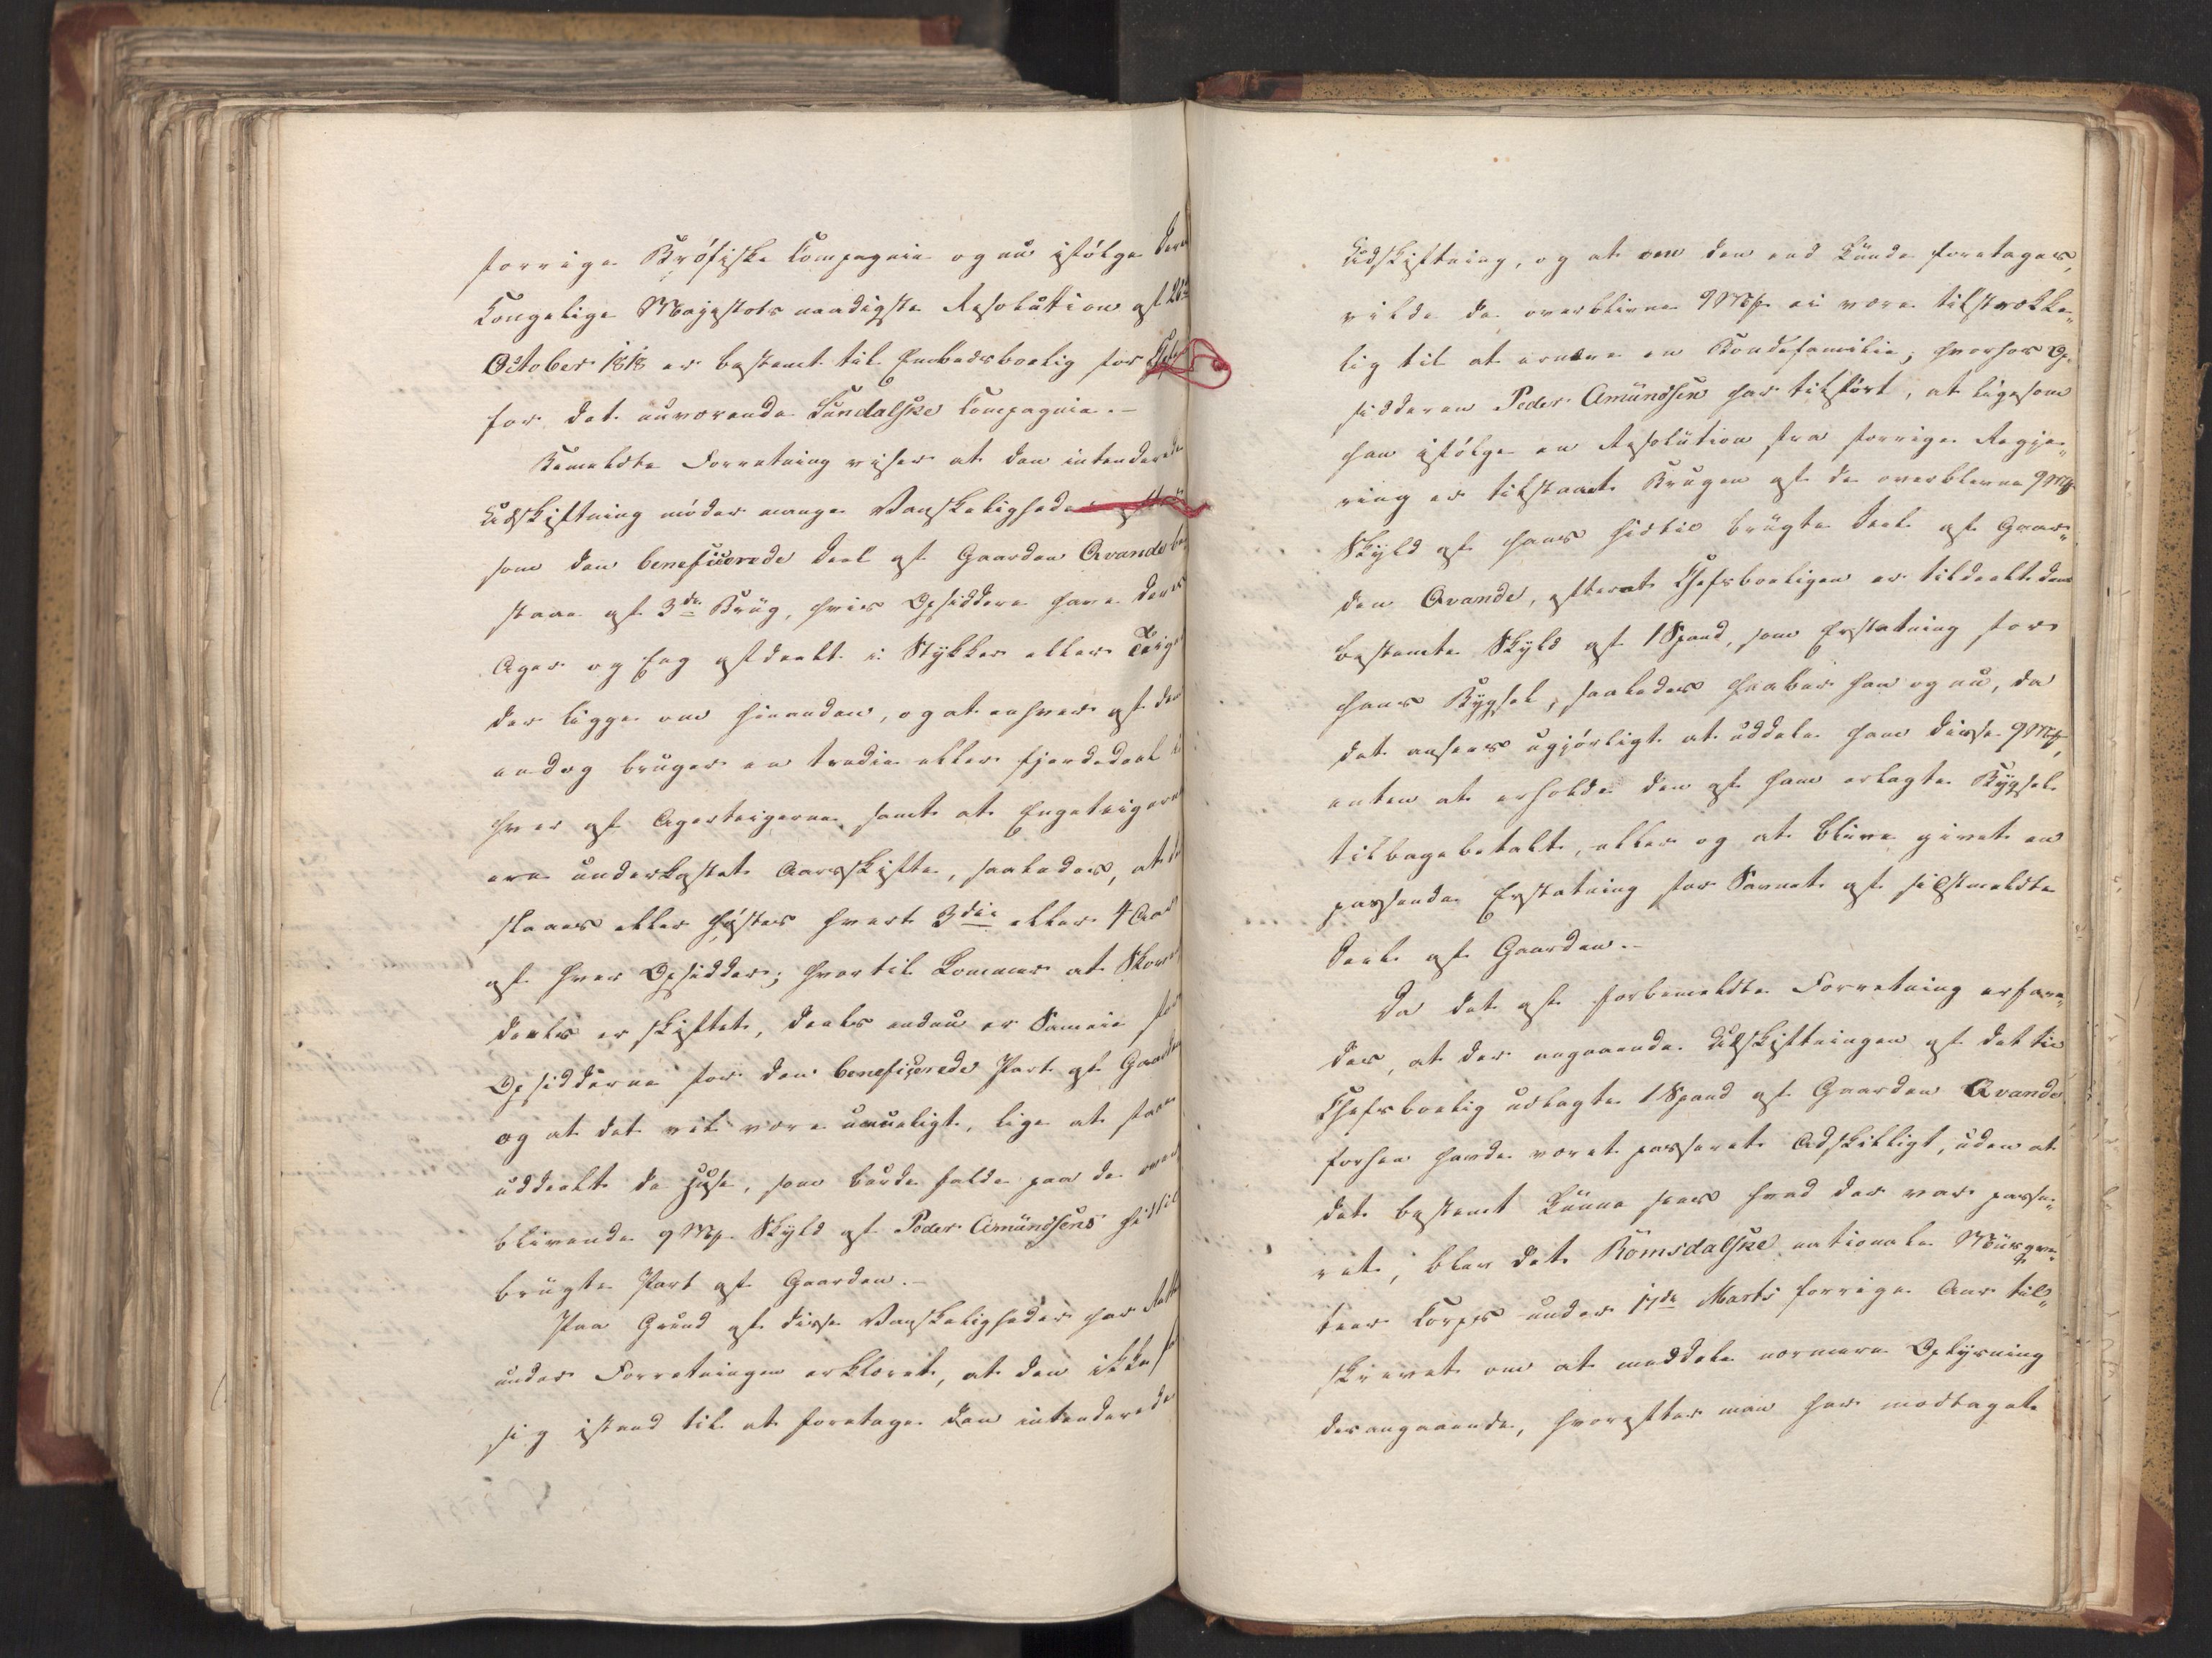 forrige Brøsiske Compagnie og nu ifølge Deres
Kongelige Majestæts naadigste Resolution af 26de
October 1818 er bestemt til Embedsboelig for Chefen
for det nuværende Sundalske Compagnie.-
Bemeldte Forretning viser at den intenderede
Udskiftning møder mange Vanskeligheder
som den beneficerede Deel af Gaarden Qvande be„
staae af 3de Brüg, hvis Opsiddere have deres
Ager og Eng afdeelt i Stÿkker eller Teige
der ligge om hinanden, og at enhver af dem
endog bruger en tredie eller fjerdedeel i
hver af Agerteigerne, samt at Engeteigerne
ere underkastet Aarsskifte, saaledes, at de
slaaes eller høstes hvert 3die eller 4 Aar
af hver Opsidder; hvortil kommer at Skoven
deels er skiftet, deels endnu er Sameie for
Opsidderne for den beneficerede Part af Gaarden
og at det vil være umueligt, lige at faae
uddeelt de Huse, som burde falde paa de over„
blivende 9 Mp. Skÿld af Peder Amündsens hidtil
brügte Part af Gaarden.-
Paa Grund af disse Vanskeligheder har Retten
under Forretningen erklæret, at den ikke saae
sig istand til at foretage den intenderede
Udskiftning, og at om den end kunde foretages,
vilde de overblivne 9 Mp. ei være tilstrække„
lig til at ernære en Bondefamilie; hvorhos Op„
sidderen Peder Amündsen har tilført, at ligesom
han ifølge en Resolution fra forrige Regje„
ring er tilstaaet Brugen af de overblevne 9 Mp.
Skÿld af hans hidtil brügte Deel af Gaar„
den Qvande, efterat Chefsboeligen er tildeelt den
bestemte Skÿld af 1 Spand, som Erstatning for
hans Bÿgsel, saaledes haaber han og nu, da
det ansees ugjørligt at uddele ham disse 9 Mp.,
enten at erholde den af ham erlagte Bÿgsel
tilbagebetalt, eller og at blive givet en
passende Erstatning for Savnet af sidstmeldte
Deel af Gaarden.-
Da det af forbemeldte Forretning erfare„
des, at der angaaende Udskiftningen af det til
Chefsboelig udlagte 1 Spand af Gaarden Qvande
forhen havde været passeret Adskilligt, uden at
det bestemt kunne sees hvad der var passe„
ret, blev det Romsdalske nationale Musqve„
teer Corps under 17de Marts forrige Aar til„
skrevet om at meddele nærmere Oplÿsning
desangaaende, hvorefter man har modtaget